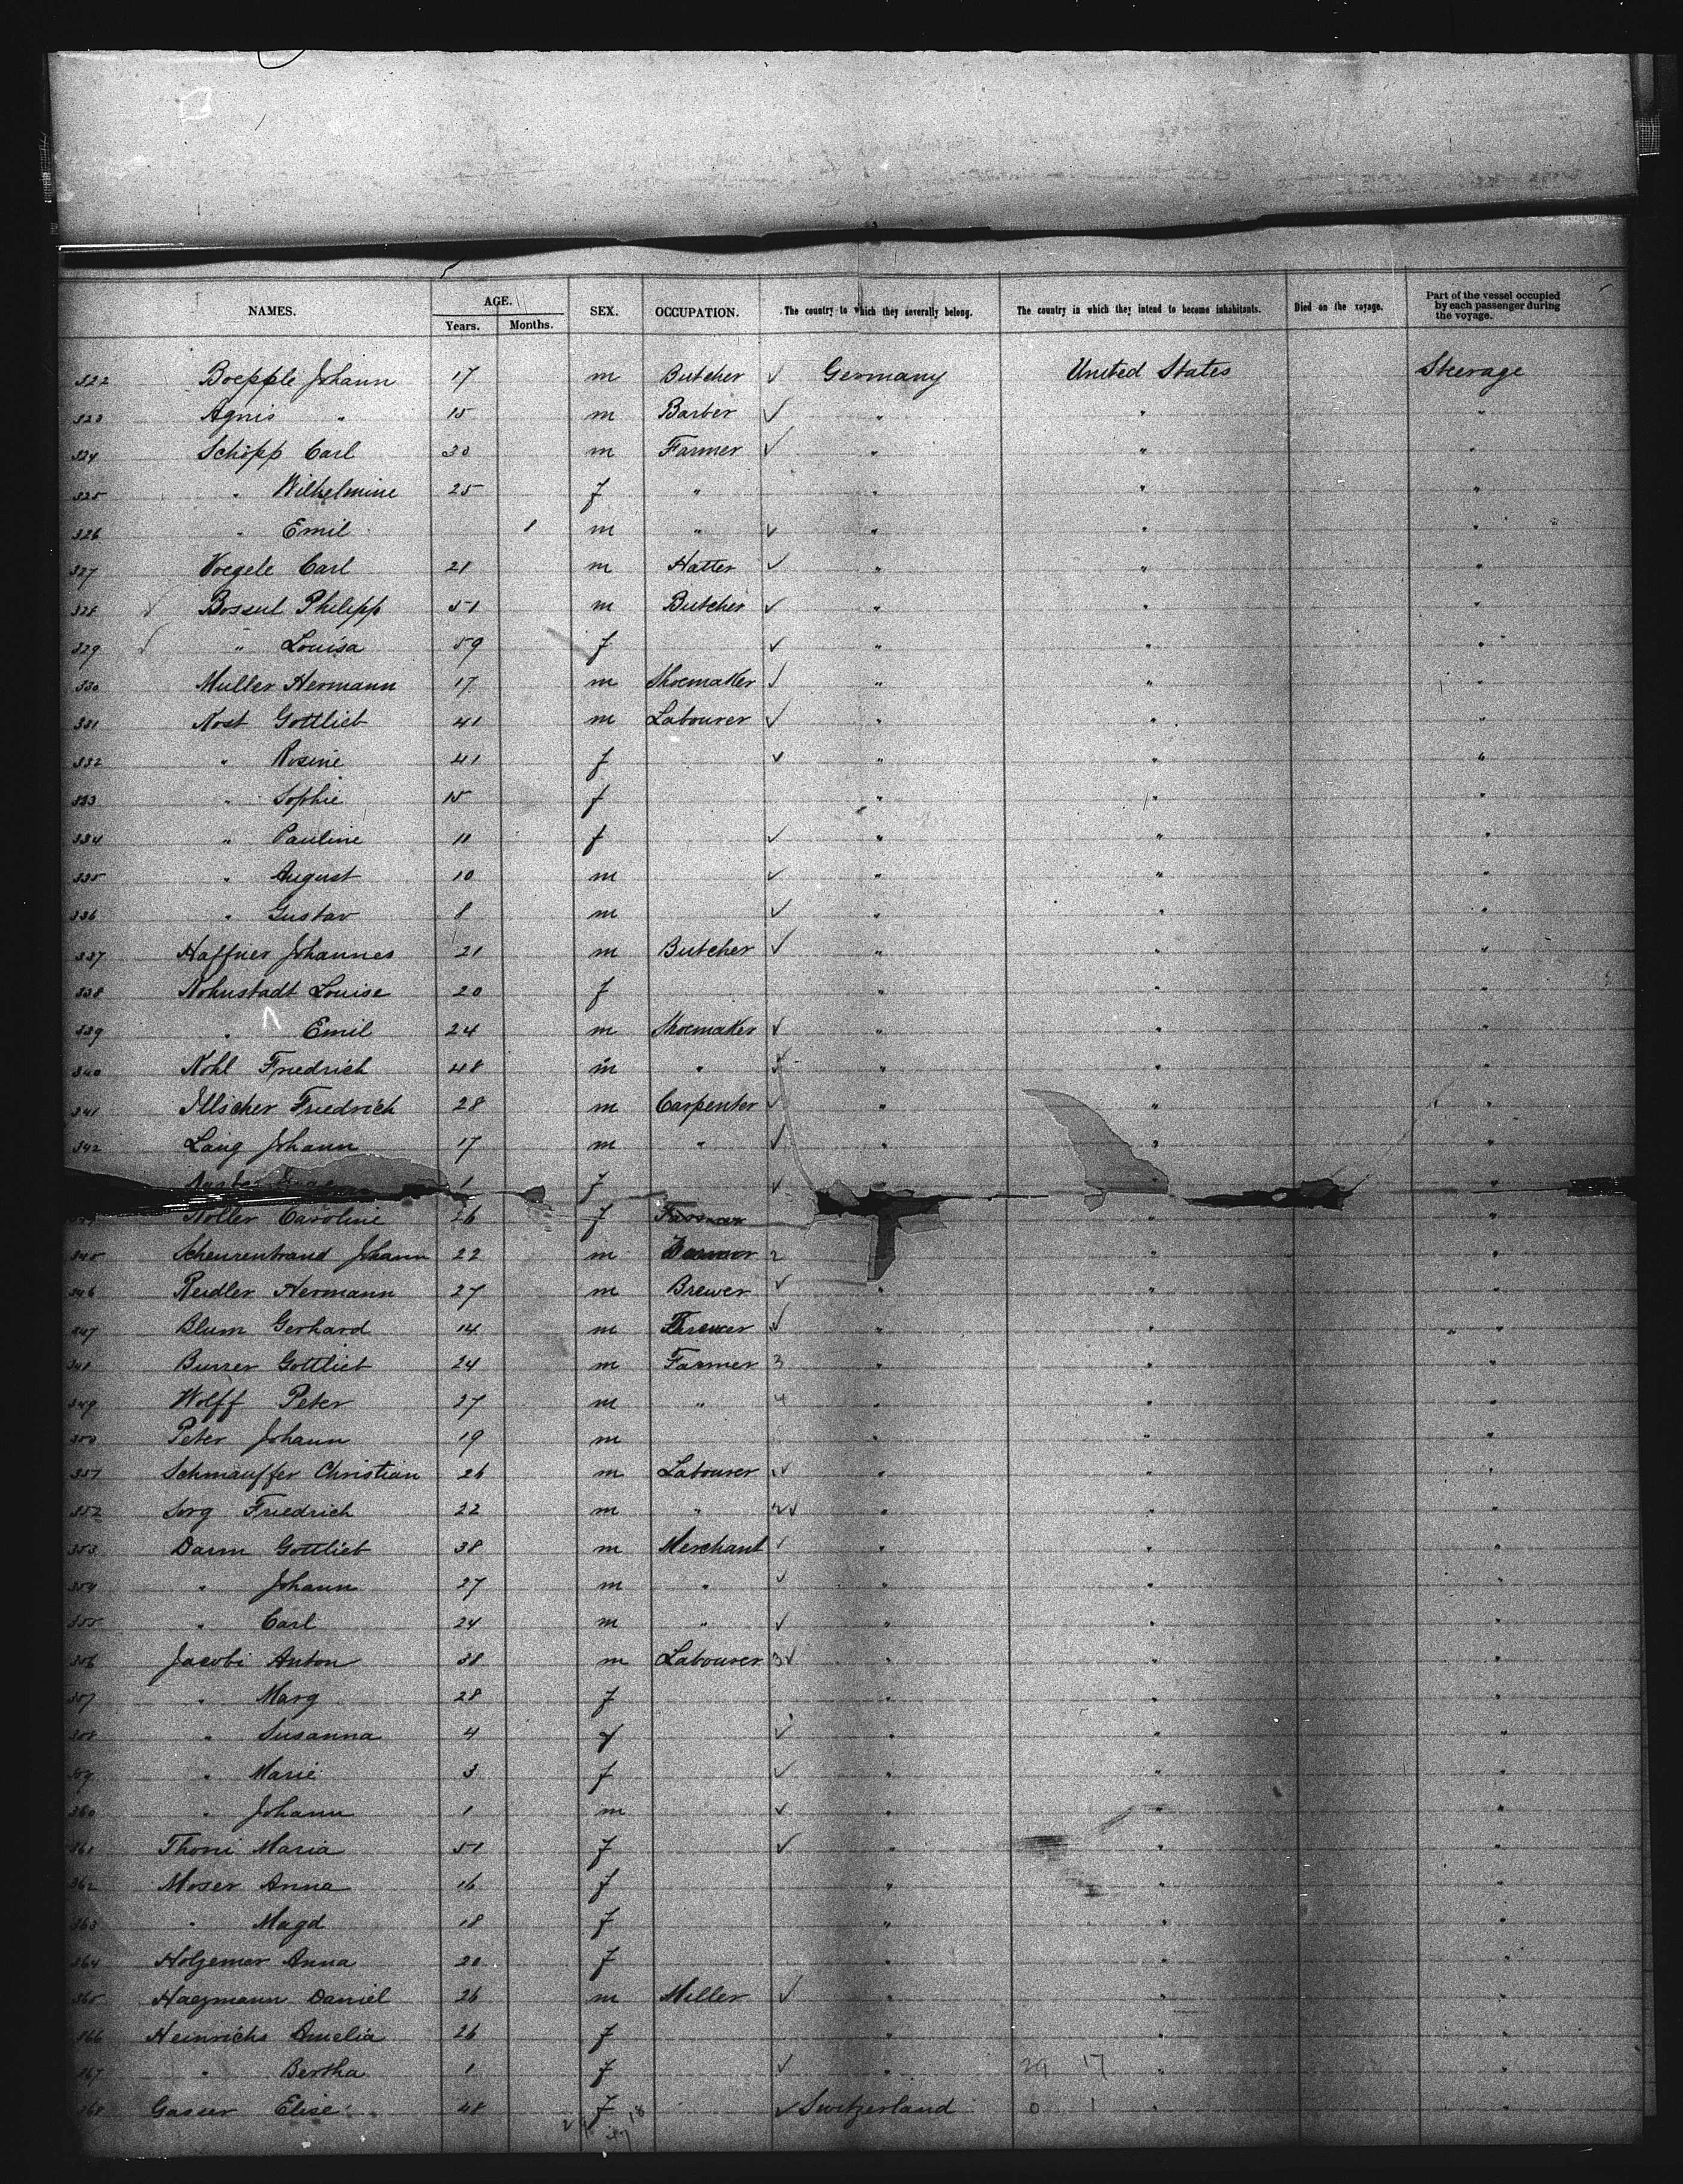 NAMES. AGE. Years. Months. SEX. OCCUPATION. The country to which they severally belong. The country in which they intend to become inhabitants. Died on the voyage. Part of the vessel occupied by each passenger during the voyage.
322 Boepple Johann 17 m Butcher ✓ Germany United States Steerage
323 Agnis " 15 m Barber ✓ " " "
324 Schöpp Carl 30 m Farmer ✓ " " "
325 " Wilhelmine 25 f " " " "
326 " Emil 1 m " ✓ " " "
327 Voegele Carl 21 m Hatter ✓ " " "
328 ✓ Bossul Philipp 51 m Butcher ✓ " " "
329 ✓ " Louisa 59 f ✓ " " "
330 Muller Hermann 17 m Shoemaker ✓ " " "
331 Nost Gottlieb 41 m Labourer ✓ " " "
332 " Rosine 41 f ✓ " " "
333 " Sophie 15 f " " "
334 " Pauline 11 f ✓ " " "
335 " August 10 m ✓ " " "
336 " Gustav 8 m ✓ " " "
337 Haffner Johannes 21 m Butcher ✓ " " "
338 Nohnstadt Louise 20 f " " "
339 " Emil 24 m Shoemaker ✓ " " "
340 Nohl Friedrich 48 m " ✓ " " "
341 Illscher Friedrich 28 m Carpenter ✓ " " "
342 Laig Johann 17 m " ✓ " " "
1 f ✓ " " "
Noller Caroline 26 f " "
345 Scheurenbrand Johann 22 m Farmer 2 " "
346 Reidler Hermann 27 m Brewer ✓ " " "
347 Blum Gerhard 14 m ✓ " " " "
348 Burrer Gottlieb 24 m Farmer 3 " " "
349 Wolff Peter 27 m " 4 " " "
350 Peter Johann 19 m " " "
351 Schmauffer Christian 26 m Labourer ✓ " " "
352 Sorg Friedrich 22 m " 2✓ " " "
353 Darm Gottlieb 38 m Merchant ✓ " " "
354 " Johann 27 m " ✓ " " "
355 " Carl 24 m " ✓ " " "
356 Jacobi Anton 38 m Labourer 3✓ " " "
357 " Marg 28 f " " "
358 " Susanna 4 f ✓ " " "
359 " Marie 3 f ✓ " " "
360 " Johann 1 m ✓ " " "
361 Thoni Maria 51 f ✓ " " "
362 Moser Anna 16 f " " "
363 " Magd 18 f " " "
364 Holzemer Anna 20 f " " "
365 Hagmann Daniel 26 m Miller ✓ " " "
366 Heinrichs Amelia 26 f " " "
367 " Bertha 1 f ✓ " 29 17 " "
368 Gasser Elise 48 f ✓ Switzerland 0 1 " "